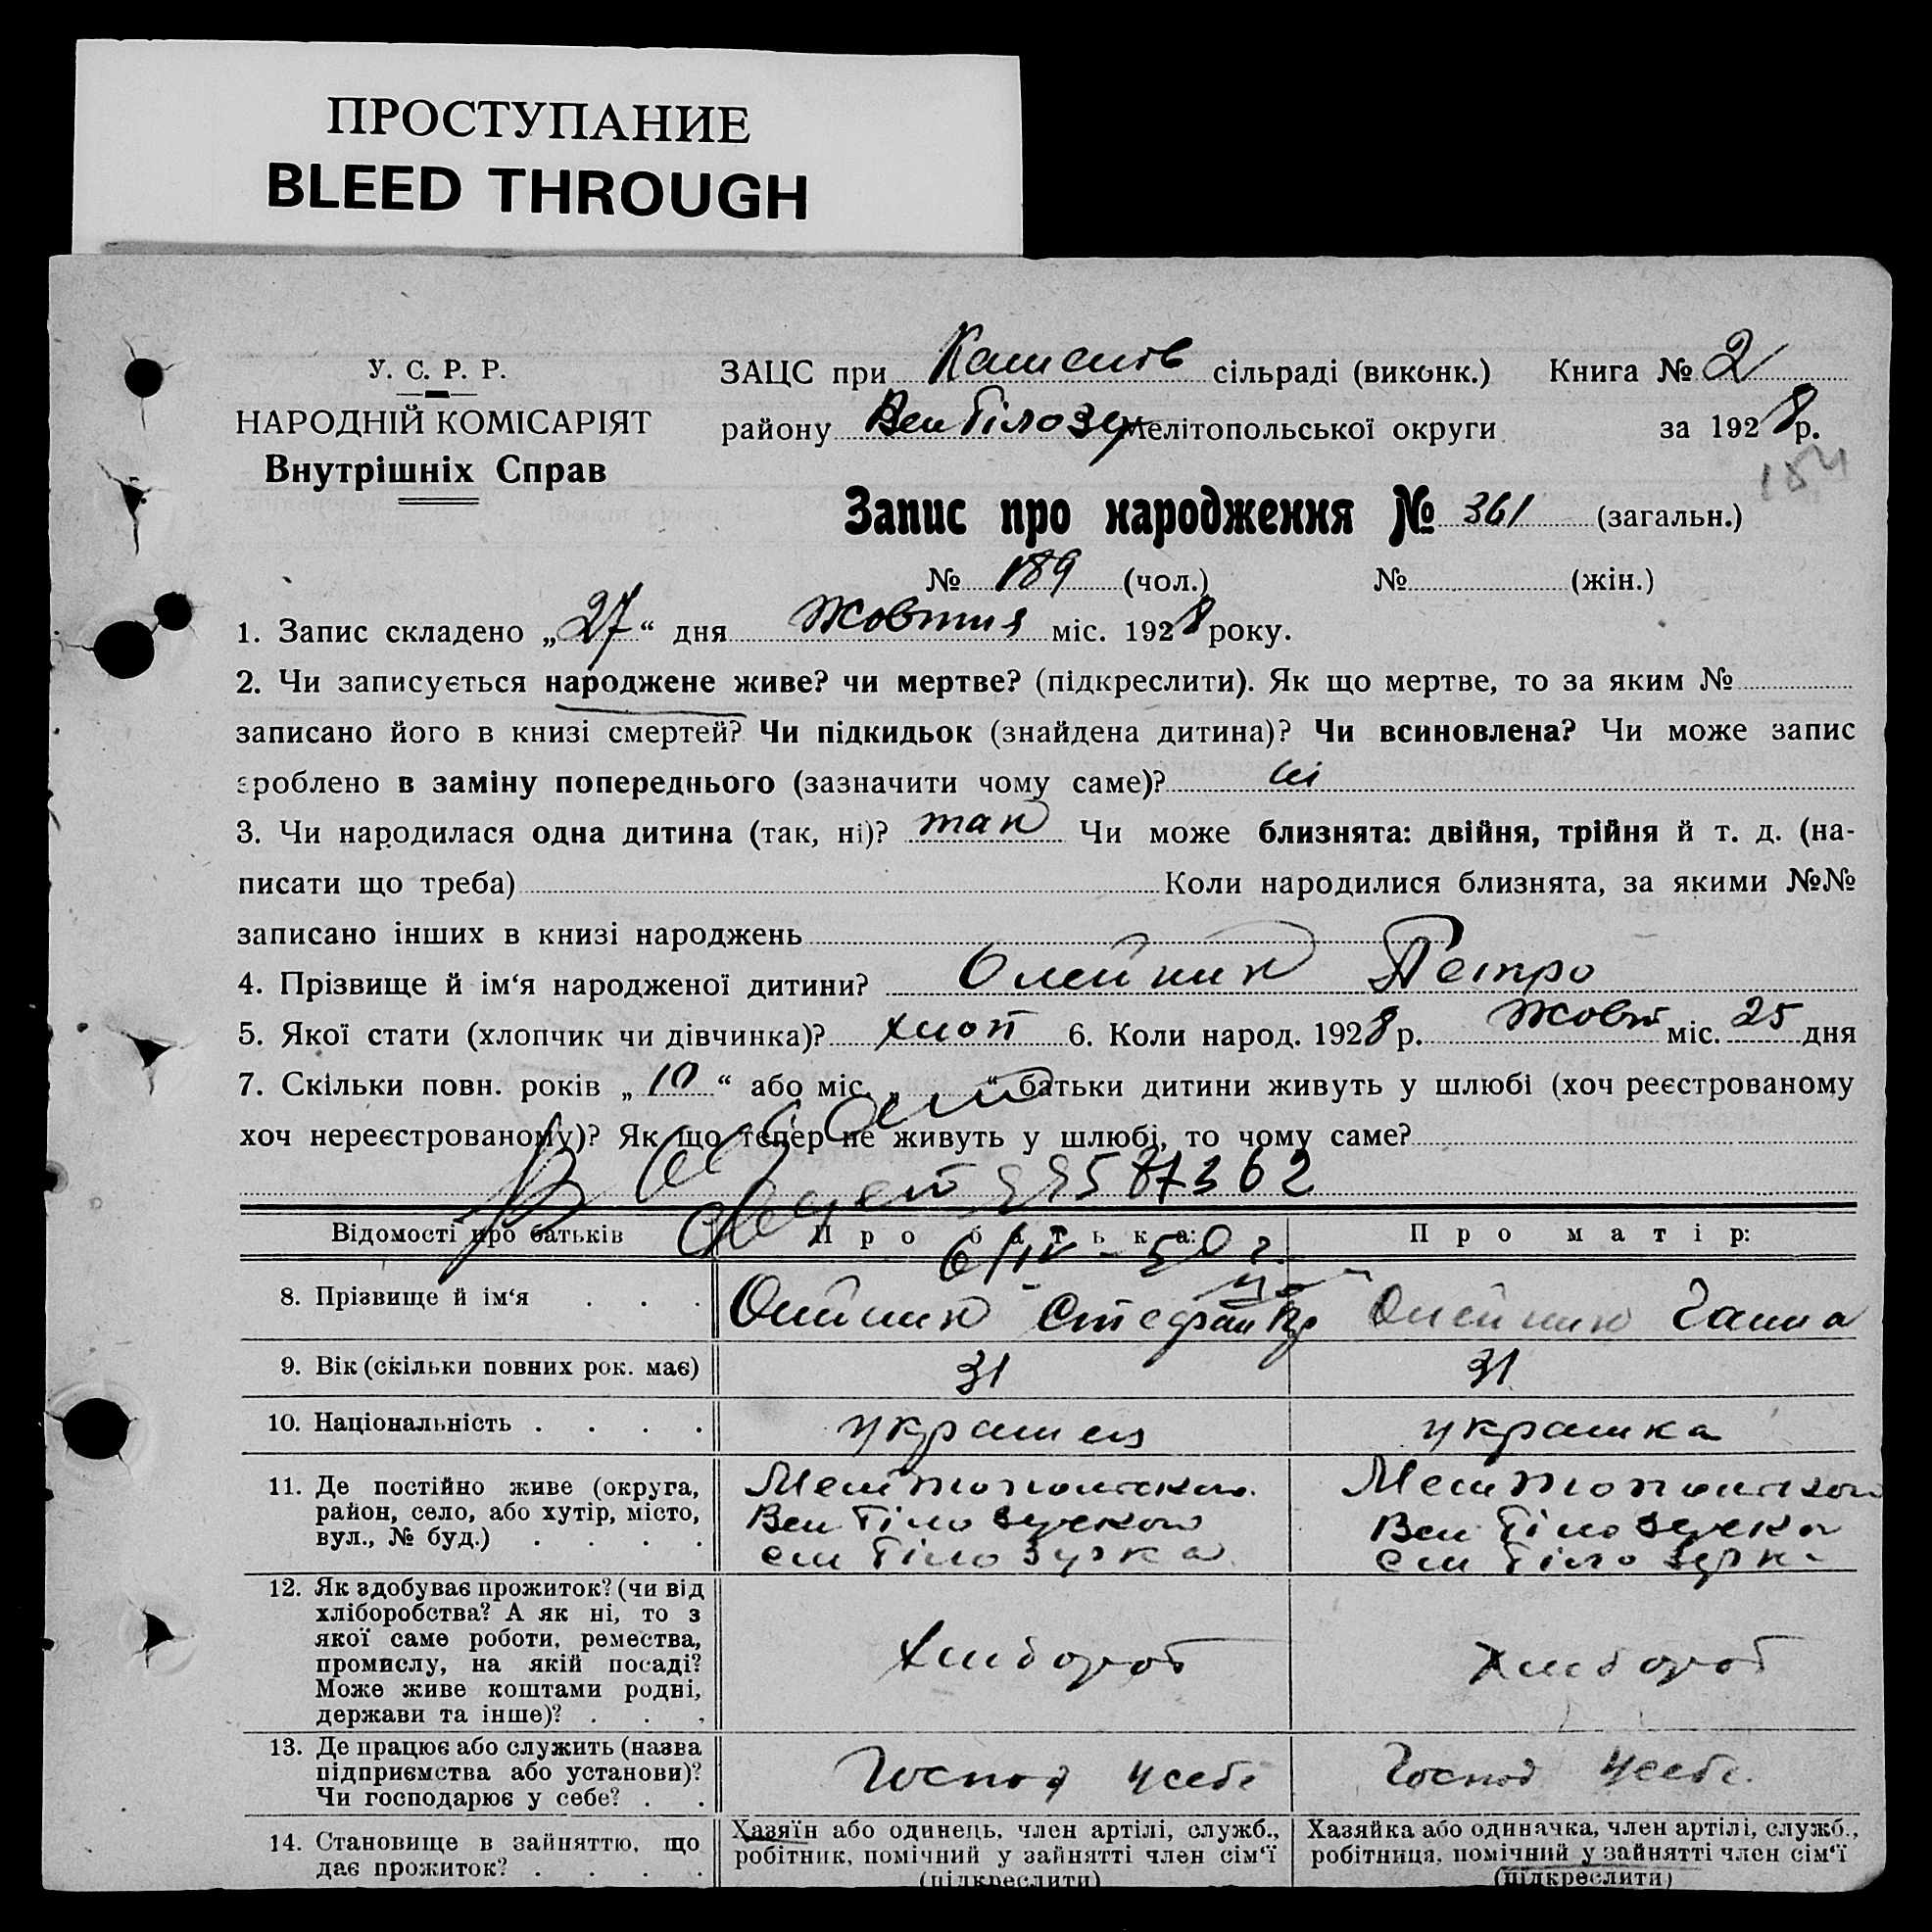 ПРОСТУПАНИЕ
BLEED THROUGH
У. С. Р. Р.
НАРОДНІЙ КОМІСАРІЯТ
Внутрішніх Справ
ЗАЦС при сільраді (виконк.) Книга № 2
району Вел Білозер Мелітопольської округи за 1928 р.
154
Запис про народження № 361 (загальн.)
№ 189 (чол.) № (жін.)
1. Запис складено „27“ дня Жовтня міс. 1928 року.
2. Чи записується народжене живе? чи мертве? (підкреслити). Як що мертве, то за яким №
записано його в книзі смертей? Чи підкидьок (знайдена дитина)? Чи всиновлена? Чи може запис
зроблено в заміну попереднього (зазначити чому саме)? ні
3. Чи народилася одна дитина (так, ні)? так Чи може близнята: двійня, трійня й т. д. (на-
писати що треба) Коли народилися близнята, за якими №№
записано інших в книзі народжень
4. Прізвище й ім‘я народженої дитини? Олейник Петро
5. Якої стати (хлопчик чи дівчинка)? хлоп 6. Коли народ. 1928 р. Жовт міс. 25 дня
7. Скільки повн. років „10“ або міс. „ “ батьки дитини живуть у шлюбі (хоч реєстрованому
хоч нереєстрованому)? Як що тепер не живуть у шлюбі, то чому саме?
587362
Відомості про батьків Про батька: Про матір:
6/IV - 50 г.
8. Прізвище й ім‘я . . . Олийник Стефан Олейник Ганна
9. Вік (скільки повних рок. має) 31 31
10. Національність . . . . украинец украинка
11. Де постійно живе (округа,
район, село, або хутір, місто,
вул., № буд.) . . . .
Мелитопольской
Вел Білозерской
сел Білозерка
Мелитопольской
Вел Білозерско
сел Білозерка
12. Як здобуває прожиток? (чи від
хліборобства? А як ні, то з
якої саме роботи, ремества,
промислу, на якій посаді?
Може живе коштами родні,
держави та інше)? . . .
Хлибороб
Хлибороб
13. Де працює або служить (назва
підприємства або установи)?
Чи господарює у себе? . .
Господ у себе
Господ у себе.
14. Становище в зайняттю, що
дає прожиток? . . . .
Хазяїн або одинець, член артілі, служб.,
робітник, помічний у зайнятті член сім‘ї
(підкреслити)
Хазяйка або одиначка, член артілі, служб.,
робітниця, помічний у зайнятті член сім‘ї
(підкреслити)